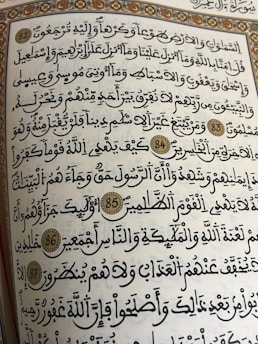 سورة ءال عمران
السَّمَٰوَٰتِ وَالَارْضِ طَوْعاً وَكَرْهاً وَإِلَيْهِ تُرْجَعُونَ 82
قُلَ ـامَنَّا بِاللَّهِ وَمَا أُنزِلَ عَلَيْنَا وَمَا أُنزِلَ عَلَىٰ إِبْرَٰهِيمَ وَإِسْمَٰعِيلَ
وَإِسْحَٰقَ وَيَعْقُوبَ وَالَاسْبَاطِ وَمَا أُوتِيَ مُوسَىٰ وَعِيسَىٰ
وَالنَّبِيئُونَ مِن رَّبِّهِمْ لَا نُفَرِّقُ بَيْنَ أَحَدٍ مِّنْهُمْ وَنَحْنُ لَهُ
مُسْلِمُونَ 83 وَمَنْ يَّبْتَغِ غَيْرَ الِاسْلَٰمِ دِيناً فَلَنْ يُّقْبَلَ مِنْهُ وَهُوَ
فِي الَاخِرَةِ مِنَ الْخَٰسِرِينَ 84 كَيْفَ يَهْدِي اللَّهُ قَوْماً كَفَرُوا
بَعْدَ إِيمَٰنِهِمْ وَشَهِدُوا أَنَّ الرَّسُولَ حَقٌّ وَجَاءَهُمُ الْبَيِّنَٰتُ
اللَّهُ لَا يَهْدِي الْقَوْمَ الظَّٰلِمِينَ 85 أُوْلَٰئِكَ جَزَاؤُهُمُ أَنَّ
هِمْ لَعْنَةَ اللَّهِ وَالْمَلَٰئِكَةِ وَالنَّاسِ أَجْمَعِينَ 86 خَٰلِدِينَ
لَا يُخَفَّفُ عَنْهُمُ الْعَذَابُ وَلَا هُمْ يُنظَرُونَ 87 إِلَّا
تَابُوا مِن بَعْدِ ذَٰلِكَ وَأَصْلَحُوا فَإِنَّ اللَّهَ غَفُورٌ رَّحِيمٌ